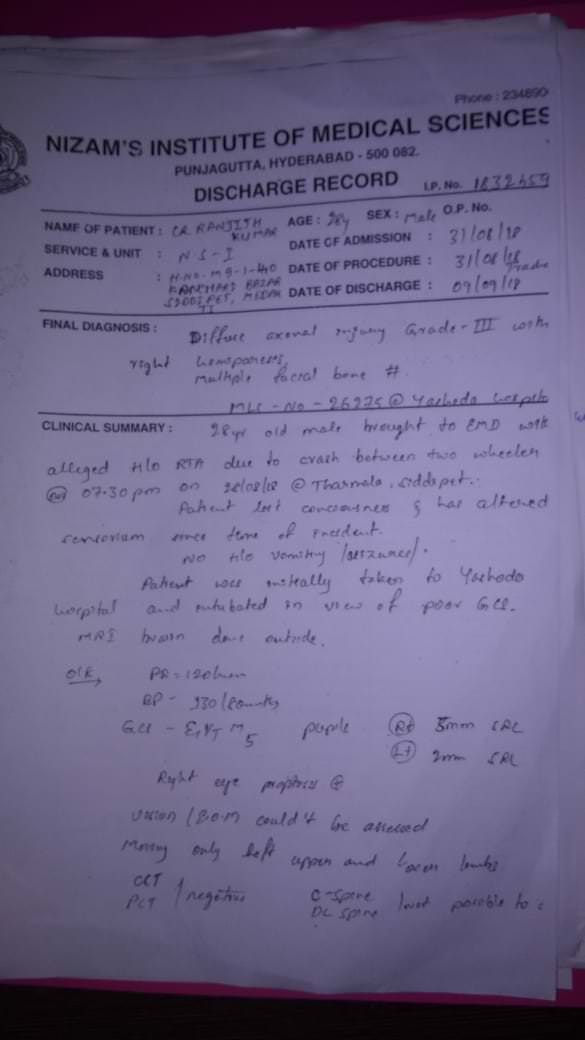 Phone : 234890
NIZAM'S INSTITUTE OF MEDICAL SCIENCES
PUNJAGUTTA, HYDERABAD - 500 082.
DISCHARGE RECORD
I.P. No. 1832459
NAME OF PATIENT : CR. RANJITH KUMAR AGE : 28y SEX : Male O.P. No.
SERVICE & UNIT : N S - I DATE OF ADMISSION : 31/08/18
ADDRESS : H.NO-M 9-1-40 DATE OF PROCEDURE : 31/08/18
BAZAR
SIDDIPET, MEDAK DATE OF DISCHARGE : 09/09/18
FINAL DIAGNOSIS : Diffuse axonal injury Grade-III with
right hemiparesis,
multiple facial bone #.
MLC-NO-26275 @ Yashoda hospital
CLINICAL SUMMARY : 28yr old male brought to EMD with
alleged H/o RTA due to crash between two wheeler
07.30 pm on /08/18 @ , Siddipet.
Patient lost & has altered
sensorium since time of
NO H/o vomiting /
Patient was initially taken to Yashoda
hospital and intubated in view of poor GCS.
MRI brain done outside.
O/E, PR = 120/min
BP - 130/80mmHg
GCS - E1 VT M5 pupils Rt 5mm SRL
Lt 2mm SRL
Right eye proptosis ⊕
Vision / E.O.M could't be assessed
Moving only left upper and lower limbs
CCT
PCT / negative C-spine
DL spine / not possible to